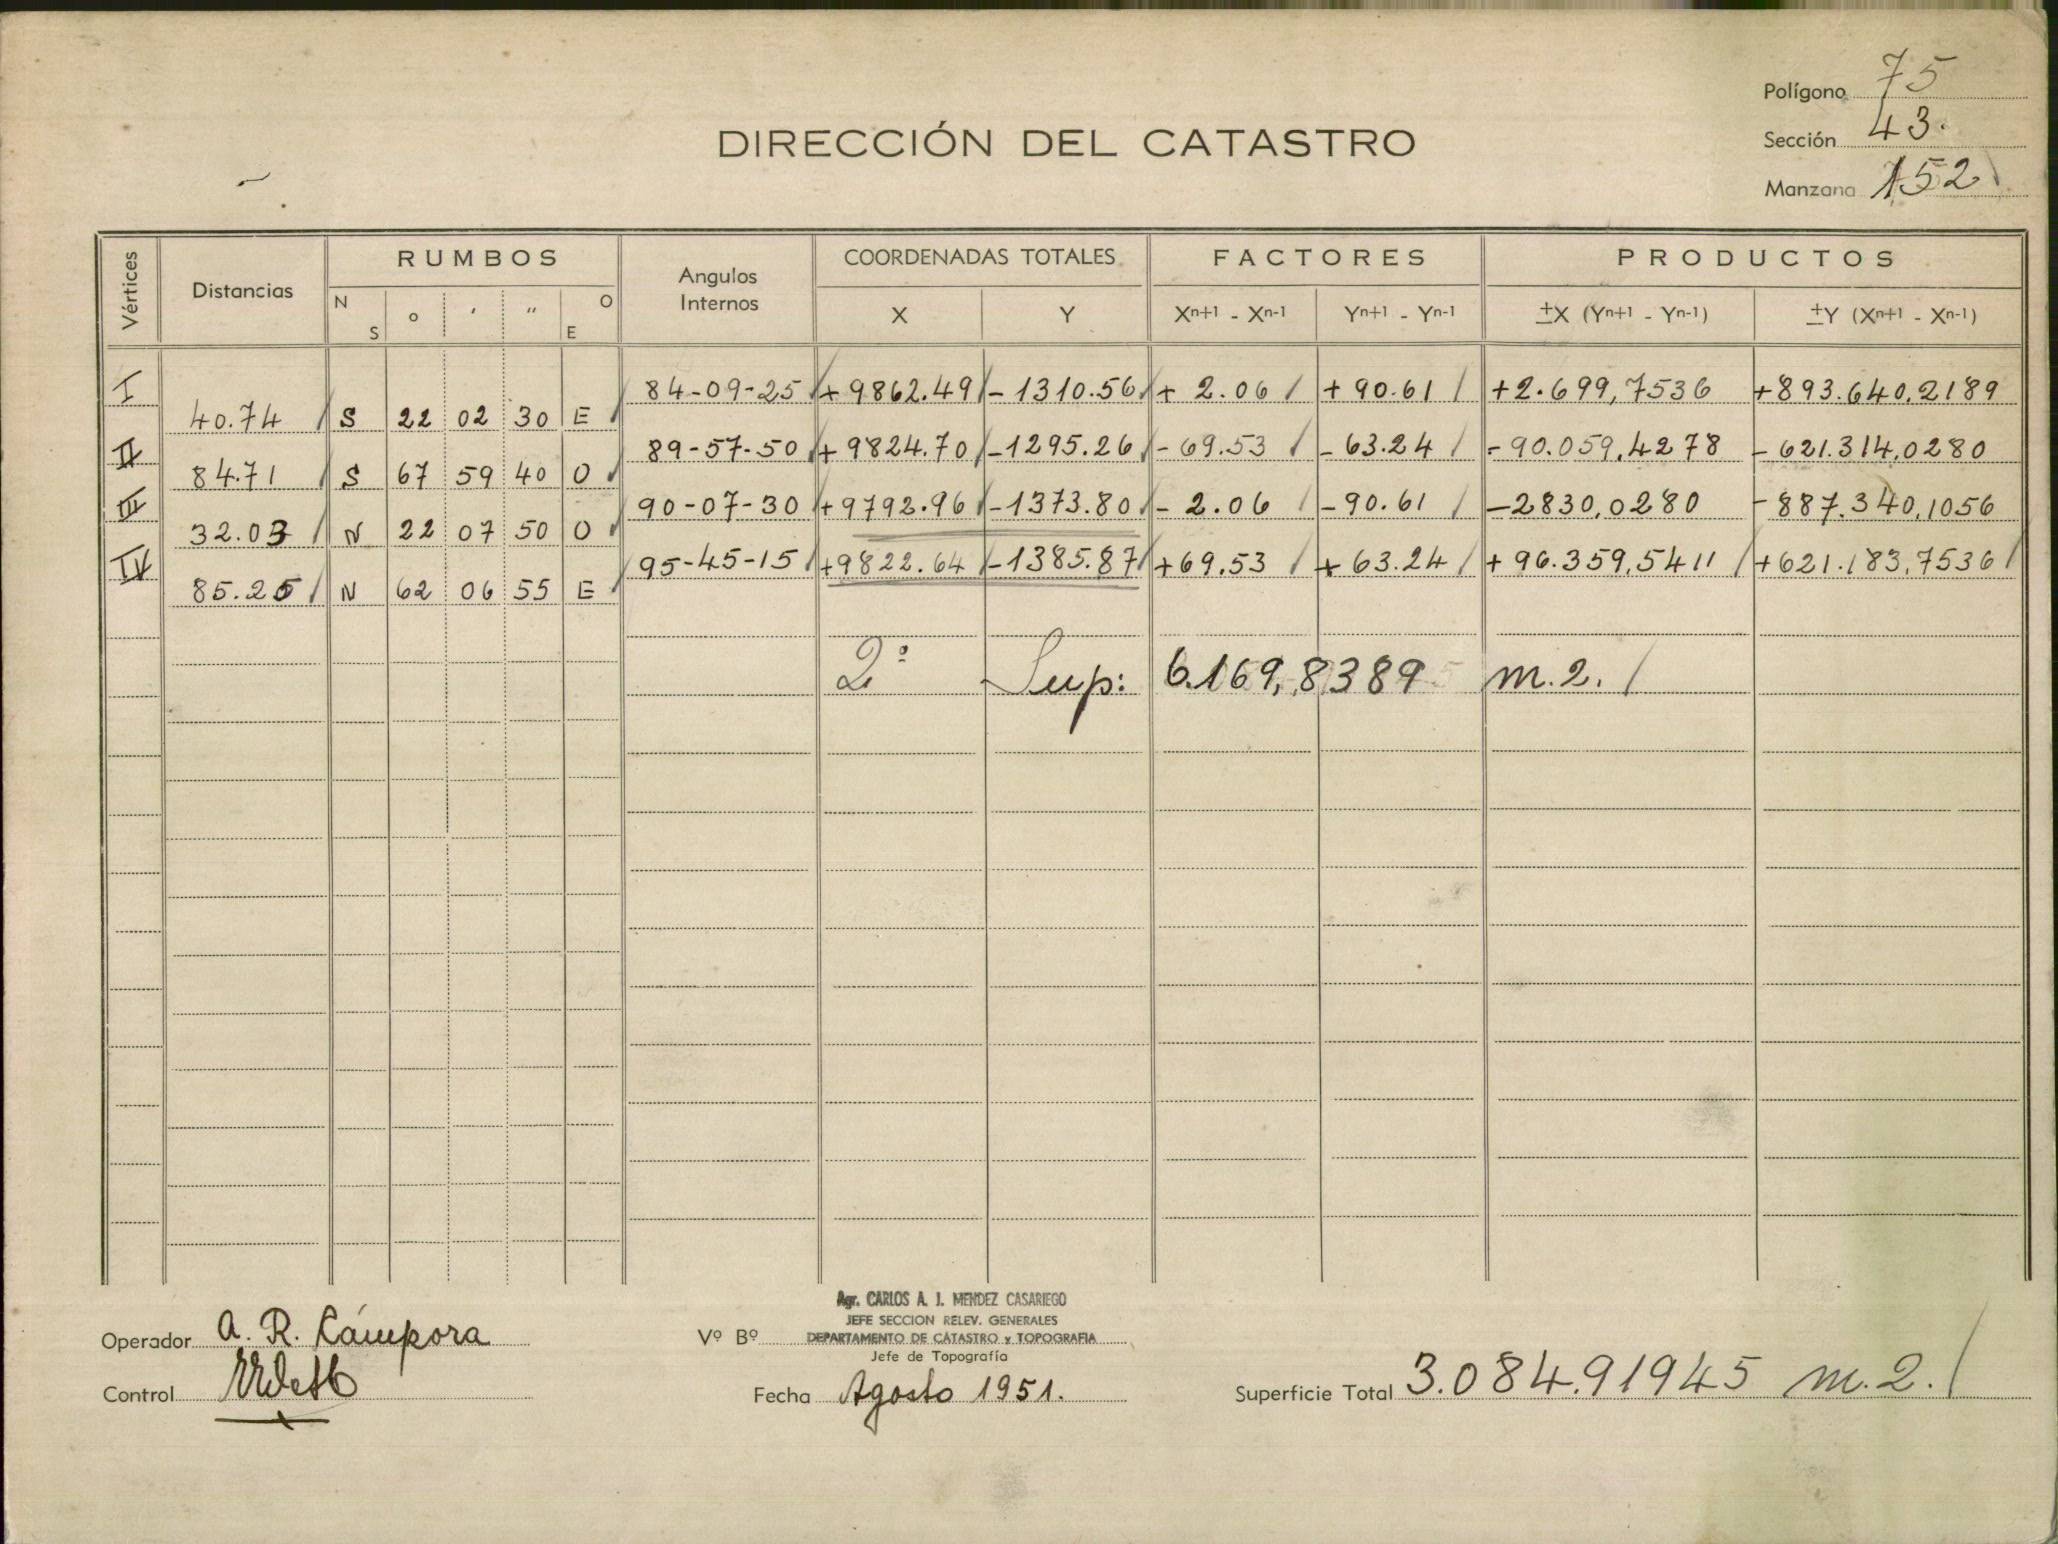 Polígono 75
DIRECCIÓN DEL CATASTRO
Sección 43.
Manzana 152
Vértices Distancias RUMBOS Angulos Internos COORDENADAS TOTALES FACTORES PRODUCTOS
N S ° ' " O E X Y Xn+1 - Xn-1 Yn+1 - Yn-1 ±X (Yn+1 - Yn-1) ±Y (Xn+1 - Xn-1)
I 84-09-25 +9862.49 -1310.56 + 2.06 +90.61 +2.699,7536 +893.640,2189
40.74 S 22 02 30 E
II 89-57-50 +9824.70 -1295.26 -69.53 -63.24 -90.059,4278 -621.314,0280
84.71 S 67 59 40 O
III 90-07-30 +9792.96 -1373.80 - 2.06 -90.61 -2830,0280 -887.340,1056
32.03 N 22 07 50 O
IV 95-45-15 +9822.64 -1385.87 +69.53 +63.24 +96.359,5411 +621.183,7536
85.25 N 62 06 55 E
2º Sup: 6.169,8389 m.2.
Agr. CARLOS A. J. MENDEZ CASARIEGO
JEFE SECCION RELEV. GENERALES
Operador A. R. Cámpora Vº Bº DEPARTAMENTO DE CATASTRO y TOPOGRAFIA
Jefe de Topografía
Control Fecha Agosto 1951. Superficie Total 3.084.91945 m.2.